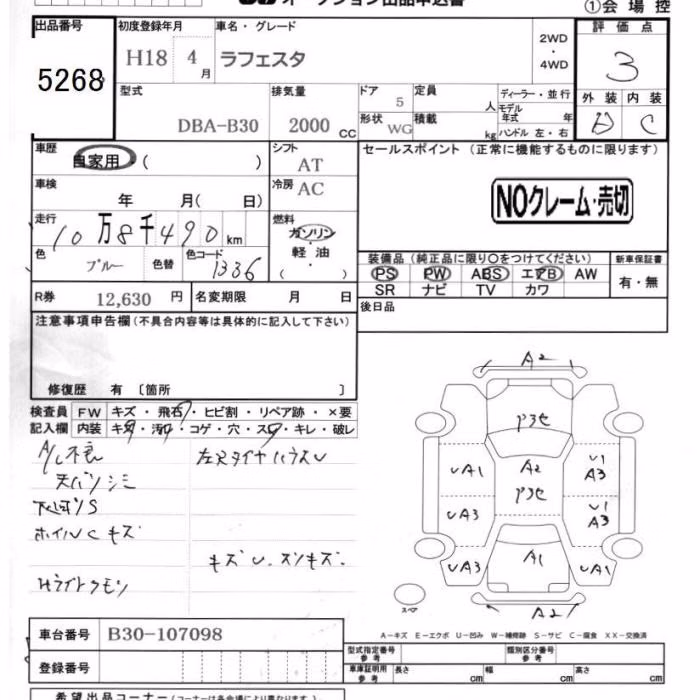 オークション出品申込書
①会場控
出品番号
5268
初度登録年月
H18 4月
車名・グレード
ラフェスタ
2WD
・
4WD
評価点
3
外装 内装
C
型式
DBA-B30
排気量
2000 CC
ドア
5
形状
WG
定員
人
積載
kg
ディーラー・並行
モデル
年式 年
ハンドル 左・右
車歴
自家用 ( )
シフト
AT
車検
年 月( 日)
冷房
AC
走行
10万8千490km
燃料
ガソリン
・
軽油
( )
色
ブルー
色替
色コード
1336
セールスポイント (正常に機能するものに限ります)
NOクレーム・売切
装備品 (純正品に限り〇をつけてください)
PS PW ABS エアB AW
SR ナビ TV カワ
新車保証書
有・無
R券
12,630 円
名変期限 月 日
後日品
注意事項申告欄 (不具合内容等は具体的に記入して下さい)
修復歴 有 〔箇所 〕
検査員
記入欄
FW キズ・飛石・ヒビ割・リペア跡・×要
内装 キズ・汚れ・コゲ・穴・スレ・キレ・破レ
A/C不良
天バリシミ
下廻りS
ホイルCキズ
Hライトクモリ
キズU.スリキズ.
A2
A2
UA1
UA3
UA3
U1
A3
U1
A3
UA1
A1
A2
スペア
A－キズ E－エクボ U－凹み W－補修跡 S－サビ C－腐食 XX－交換済
車台番号
B30-107098
登録番号
型式指定番号
参考
類別区分番号
参考
車庫証明用
参考
長さ cm
幅 cm
高さ cm
希望出品コーナー (コーナーは各会場により異なります)